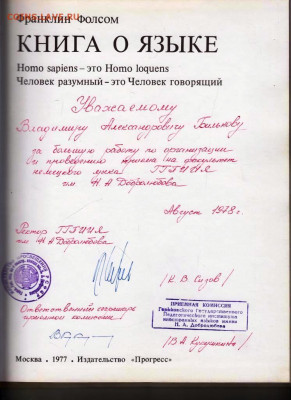 COINS.SU
Франклин Фолсом
КНИГА О ЯЗЫКЕ
Homo sapiens – это Homo loquens
Человек разумный – это Человек говорящий
Уважаемому
Владимиру Александровичу
за большую работу по организации
и проведению приёма на факультет
немецкого языка ГГПИИЯ
им Н А Добролюбова
Август 1978 г.
Ректор ГГПИИЯ
им Н А Добролюбова
Ответственный секретарь
приёмной комиссии
ПРИЕМНАЯ КОМИССИЯ
Горьковского Государственного
Педагогического института
иностранных языков имени
Н. А. Добролюбова
Москва . 1977 . Издательство «Прогресс»